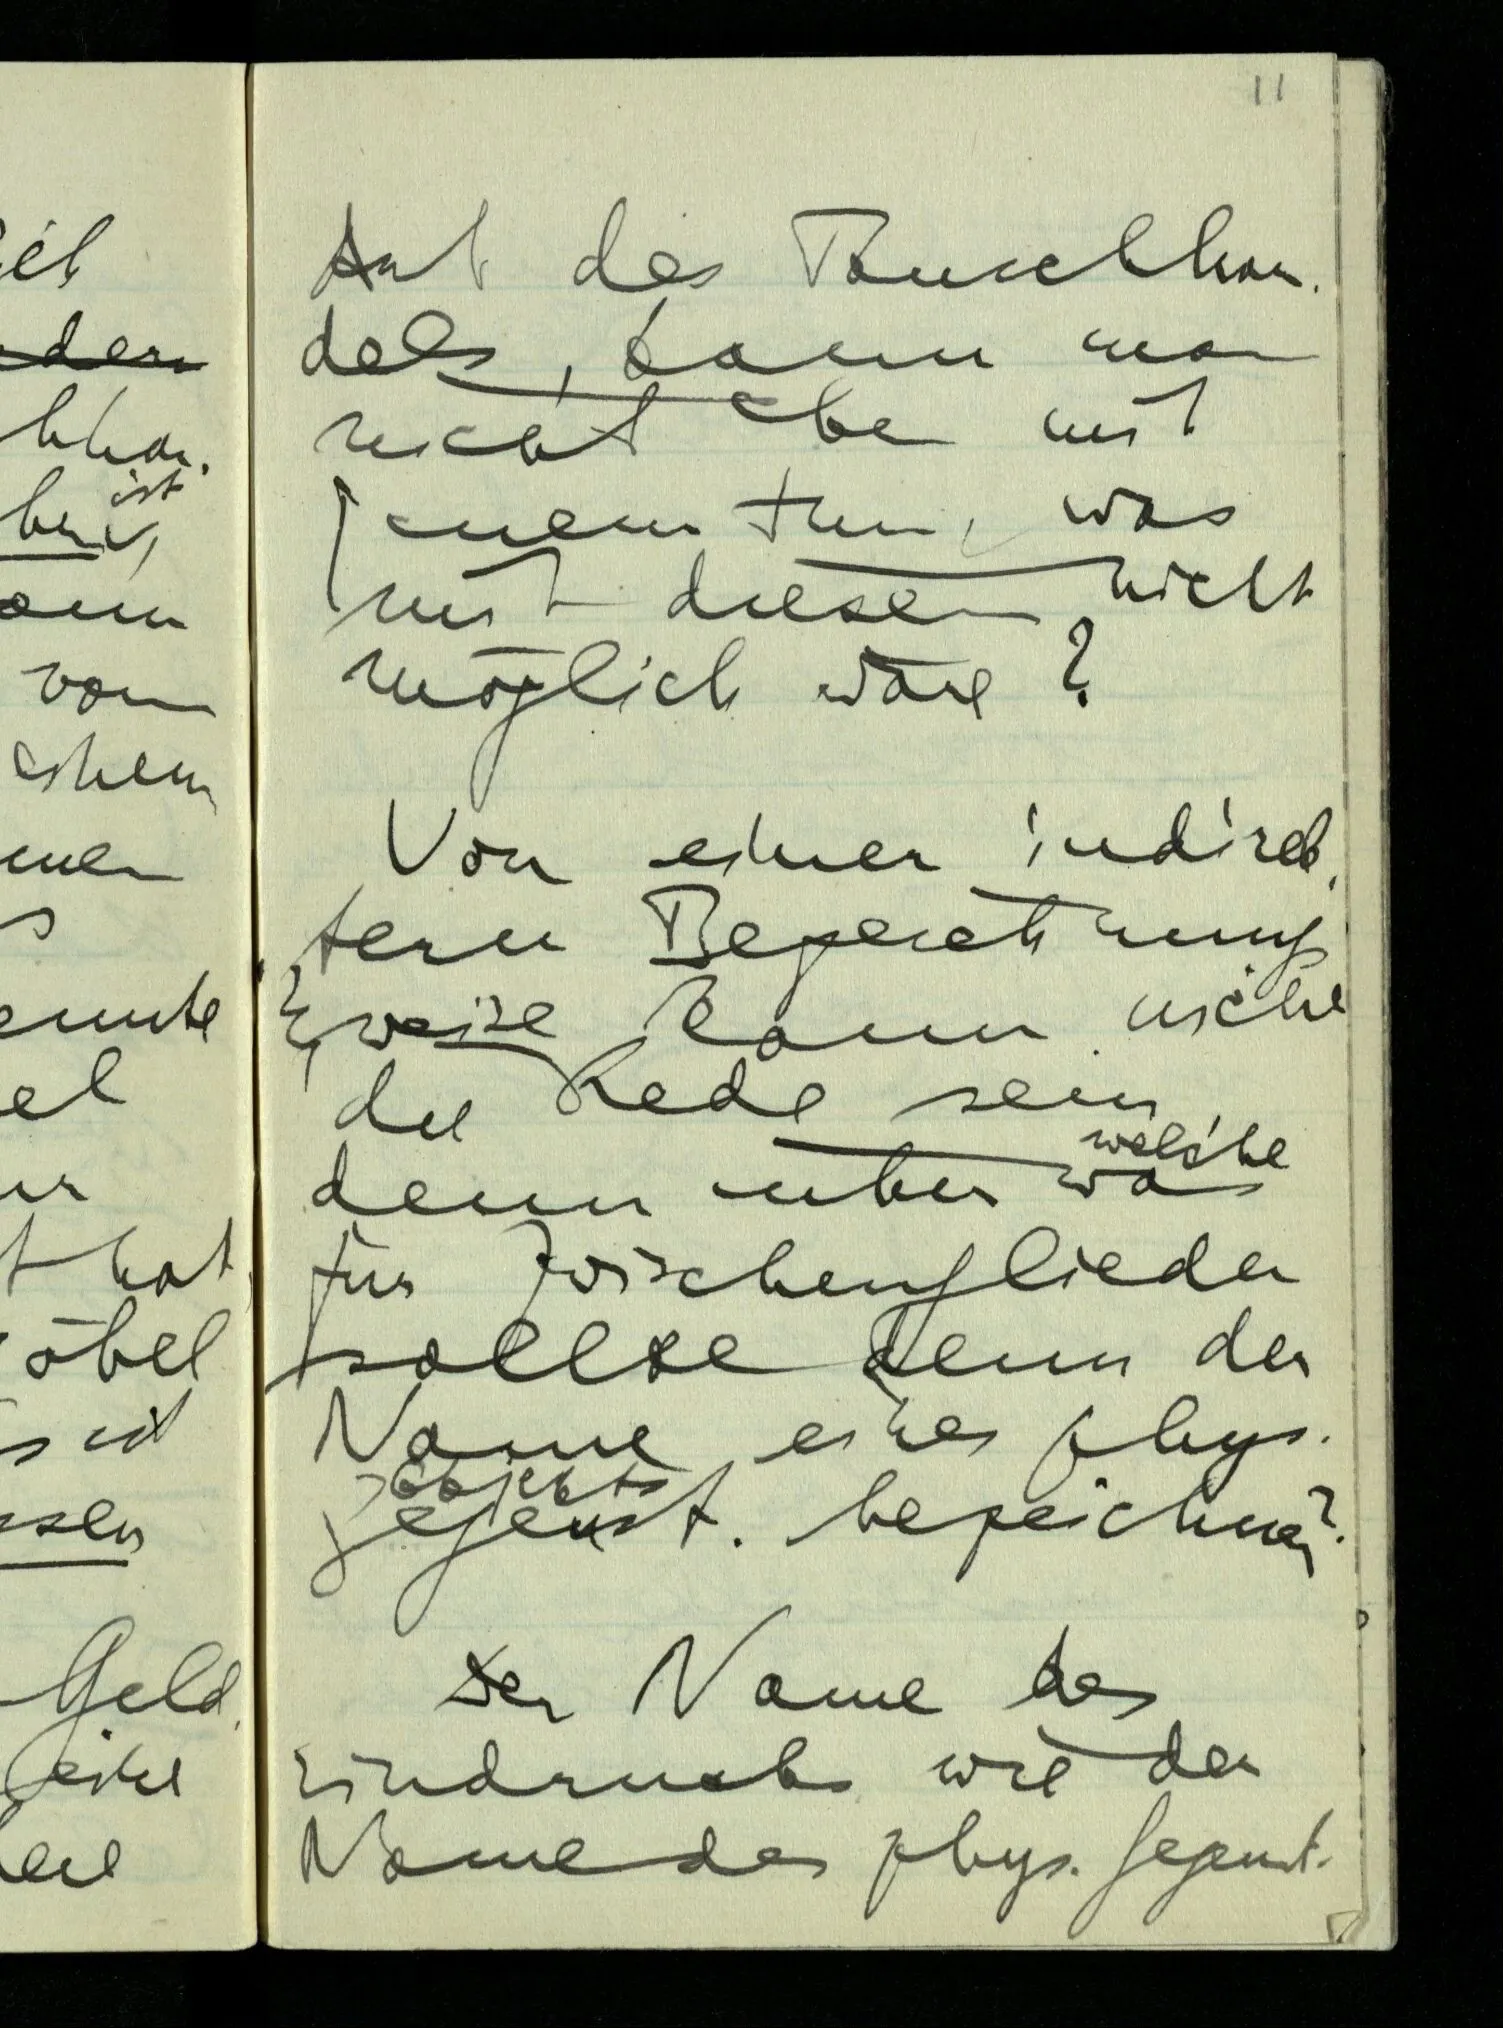 ich
ndern
hhan-
ber ist,
ann
vom
chem
nen
s
ennte
el
ur
t hat,
öbel
s ist
ssen
Geld,
eine
ere
11
Art des Tauschhan-
dels, kann man
nicht aber mit
jenem tun, was
mit diesem nicht
möglich wäre?
Von einer indirek-
tern Bezeichnungs
weise kann nicht
die Rede sein
welche
denn über was
für Zwischenglieder
sollte denn der
Name eines phys.
Objekts
Gegenst. bezeichnen?
Der Name des
Eindrucks wie der
Name des phys. Gegenst.